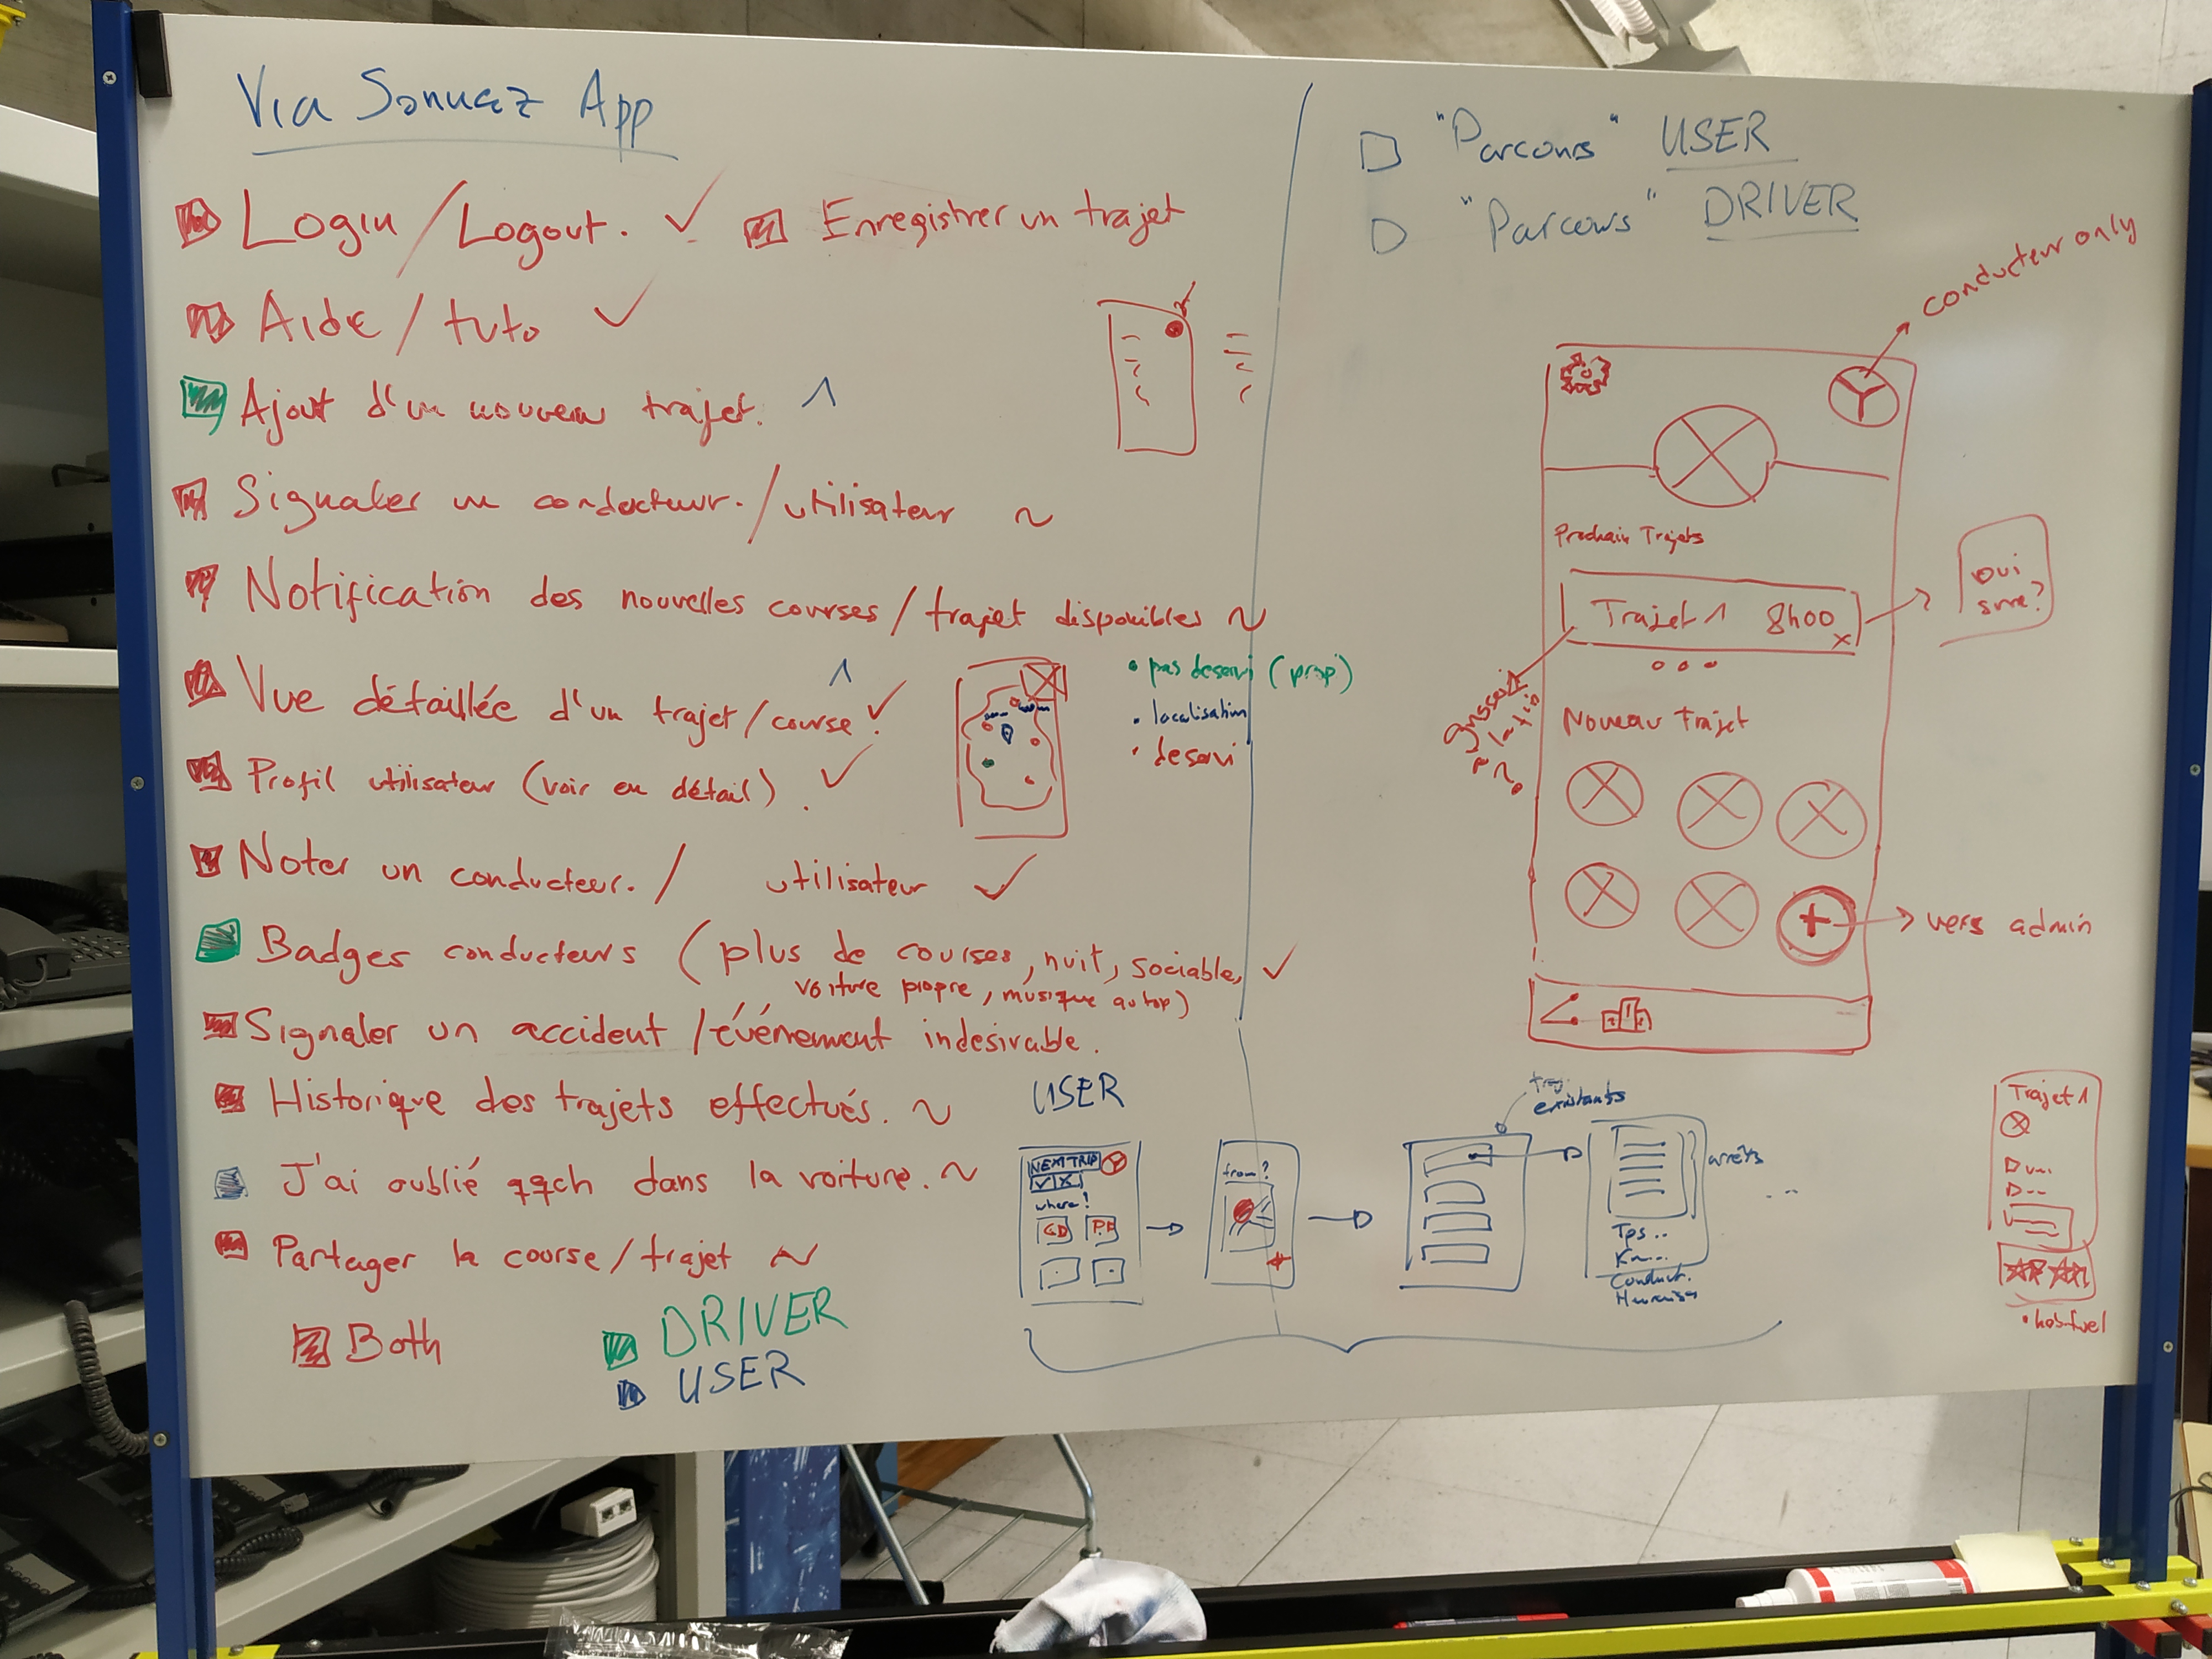 Via Sonuaz App
Login / Logout.
Enregistrer un trajet
Aide / tuto
Ajout d'un nouveau trajet.
Signaler un conducteur. / utilisateur
Notification des nouvelles courses / trajet disponibles
Vue détaillée d'un trajet / course
Profil utilisateur (voir en détail).
Noter un conducteur. / utilisateur
Badges conducteurs (plus de courses, nuit, sociable,
voiture propre, musique au top)
Signaler un accident / événement indésirable.
Historique des trajets effectués.
J'ai oublié qqch dans la voiture.
Partager la course / trajet
Both
DRIVER
USER
• pas desservi (prop)
• localisation
• desservi
"Parcours" USER
"Parcours" DRIVER
conducteur only
Prochain Trajets
Trajet 1 8h00
x
oui
Nouveau trajet
+
vers admin
USER
NEXT TRIP
where?
GD
PF
from?
existants
arrêts
Tps..
Km...
Conduct.
Trajet 1